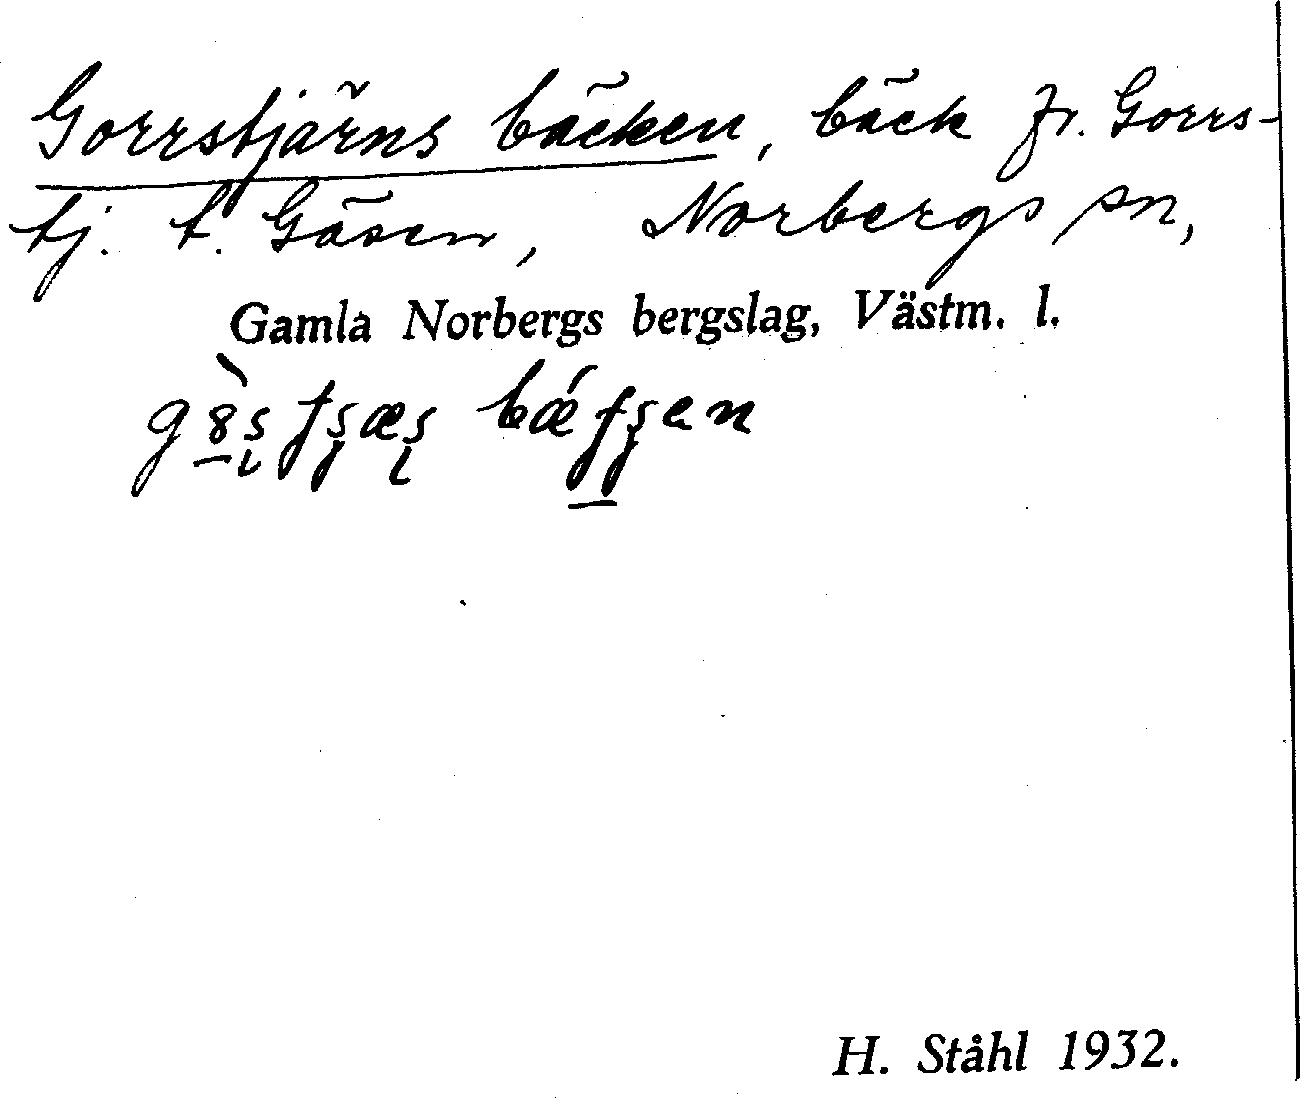 Gorrstjärns bäcken, bäck fr. Gorrs-
tj. t. Gäsen, Norbergs sn,
Gamla Norbergs bergslag, Västm. l.
H. Ståhl 1932.